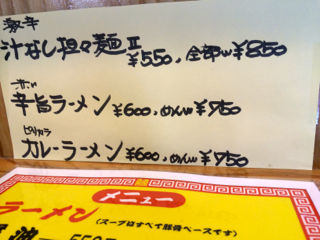 激辛
汁なし担々麺Ⅱ ¥550, 全部W¥850
辛い
辛旨ラーメン¥600, めんW¥750
ピリカラ
カレーラーメン¥600, めんW¥750
メニュー
ラーメン
(スープはすべて豚骨ベースです)